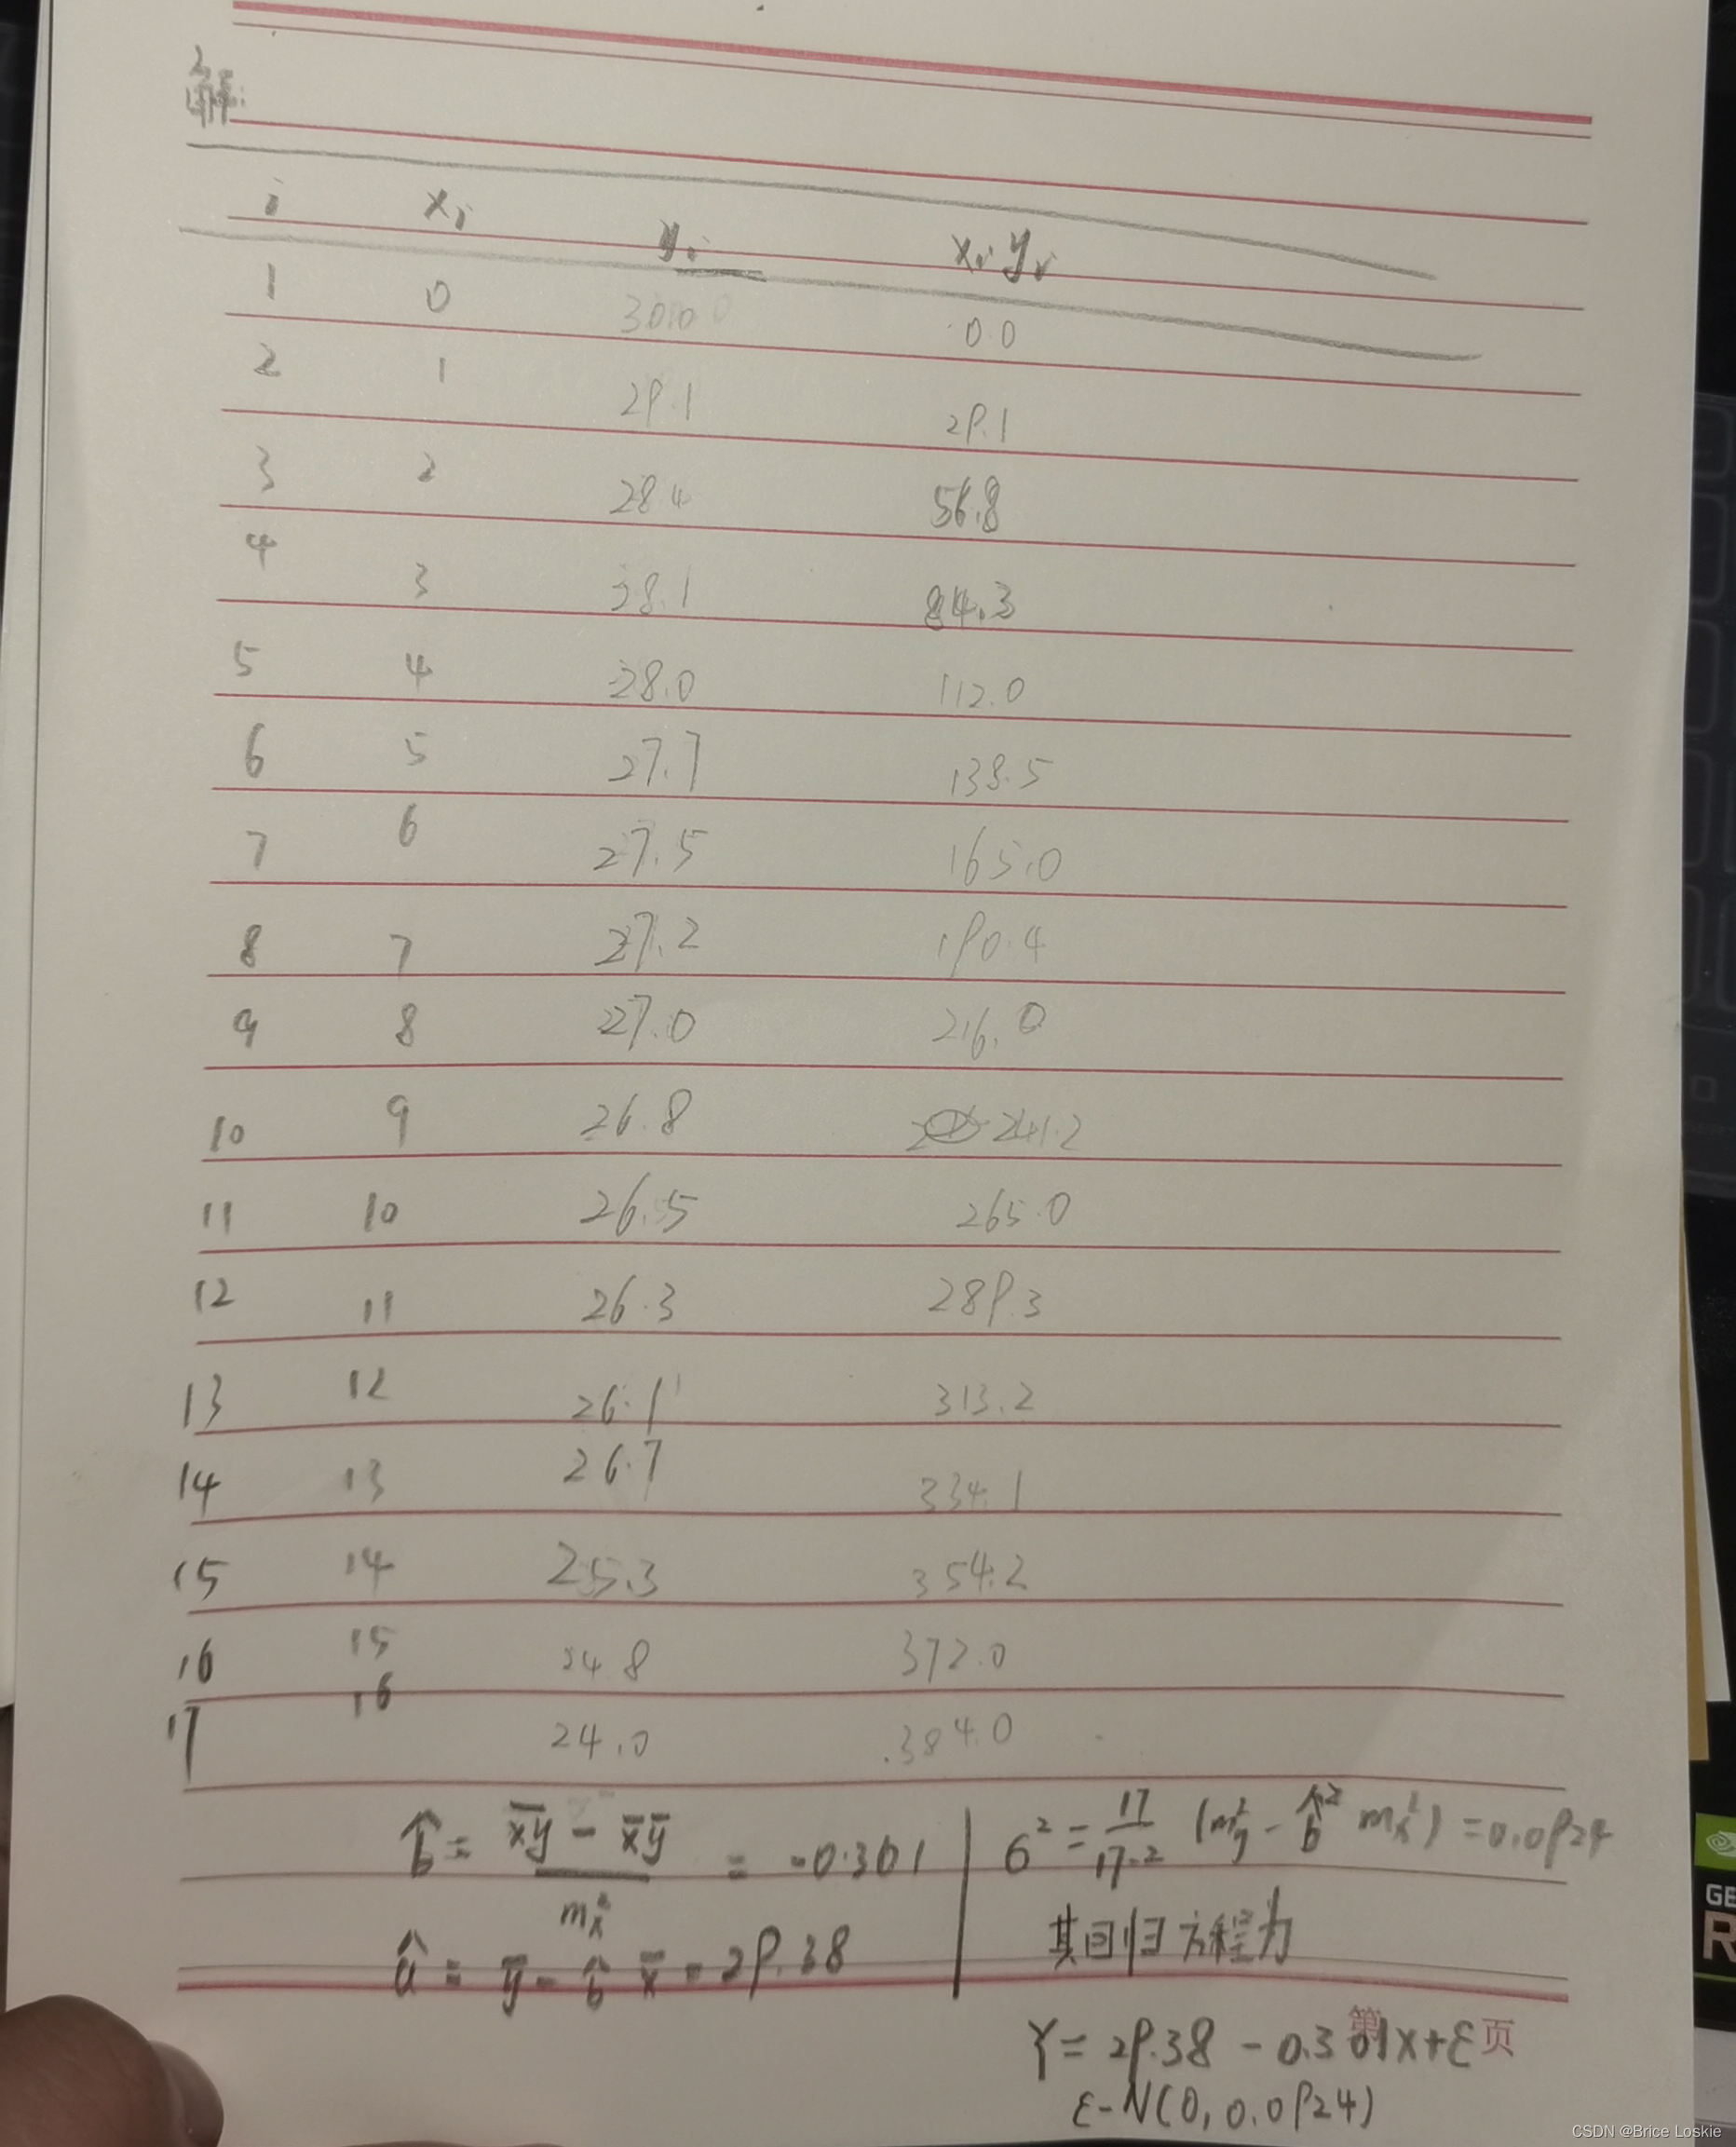 解:
i xi yi xiyi
1 0 30.0 0.0
2 1 29.1 29.1
3 2 28.4 56.8
4 3 28.1 84.3
5 4 28.0 112.0
6 5 27.7 138.5
7 6 27.5 165.0
8 7 27.2 190.4
9 8 27.0 216.0
10 9 26.8 241.2
11 10 26.5 265.0
12 11 26.3 289.3
13 12 26.1 313.2
14 13 26.7 334.1
15 14 25.3 354.2
16 15 24.8 372.0
17 16 24.0 384.0
b̂ = (x̄ȳ - x̄ȳ) / mx² = -0.301
â = ȳ - b̂ x̄ = 29.38
σ² = 17/(17-2) (my² - b̂² mx²) = 0.0924
其回归方程为
Y = 29.38 - 0.301x + ε
ε-N(0, 0.0924)
第 页
GE
R
CSDN @Brice Loskie